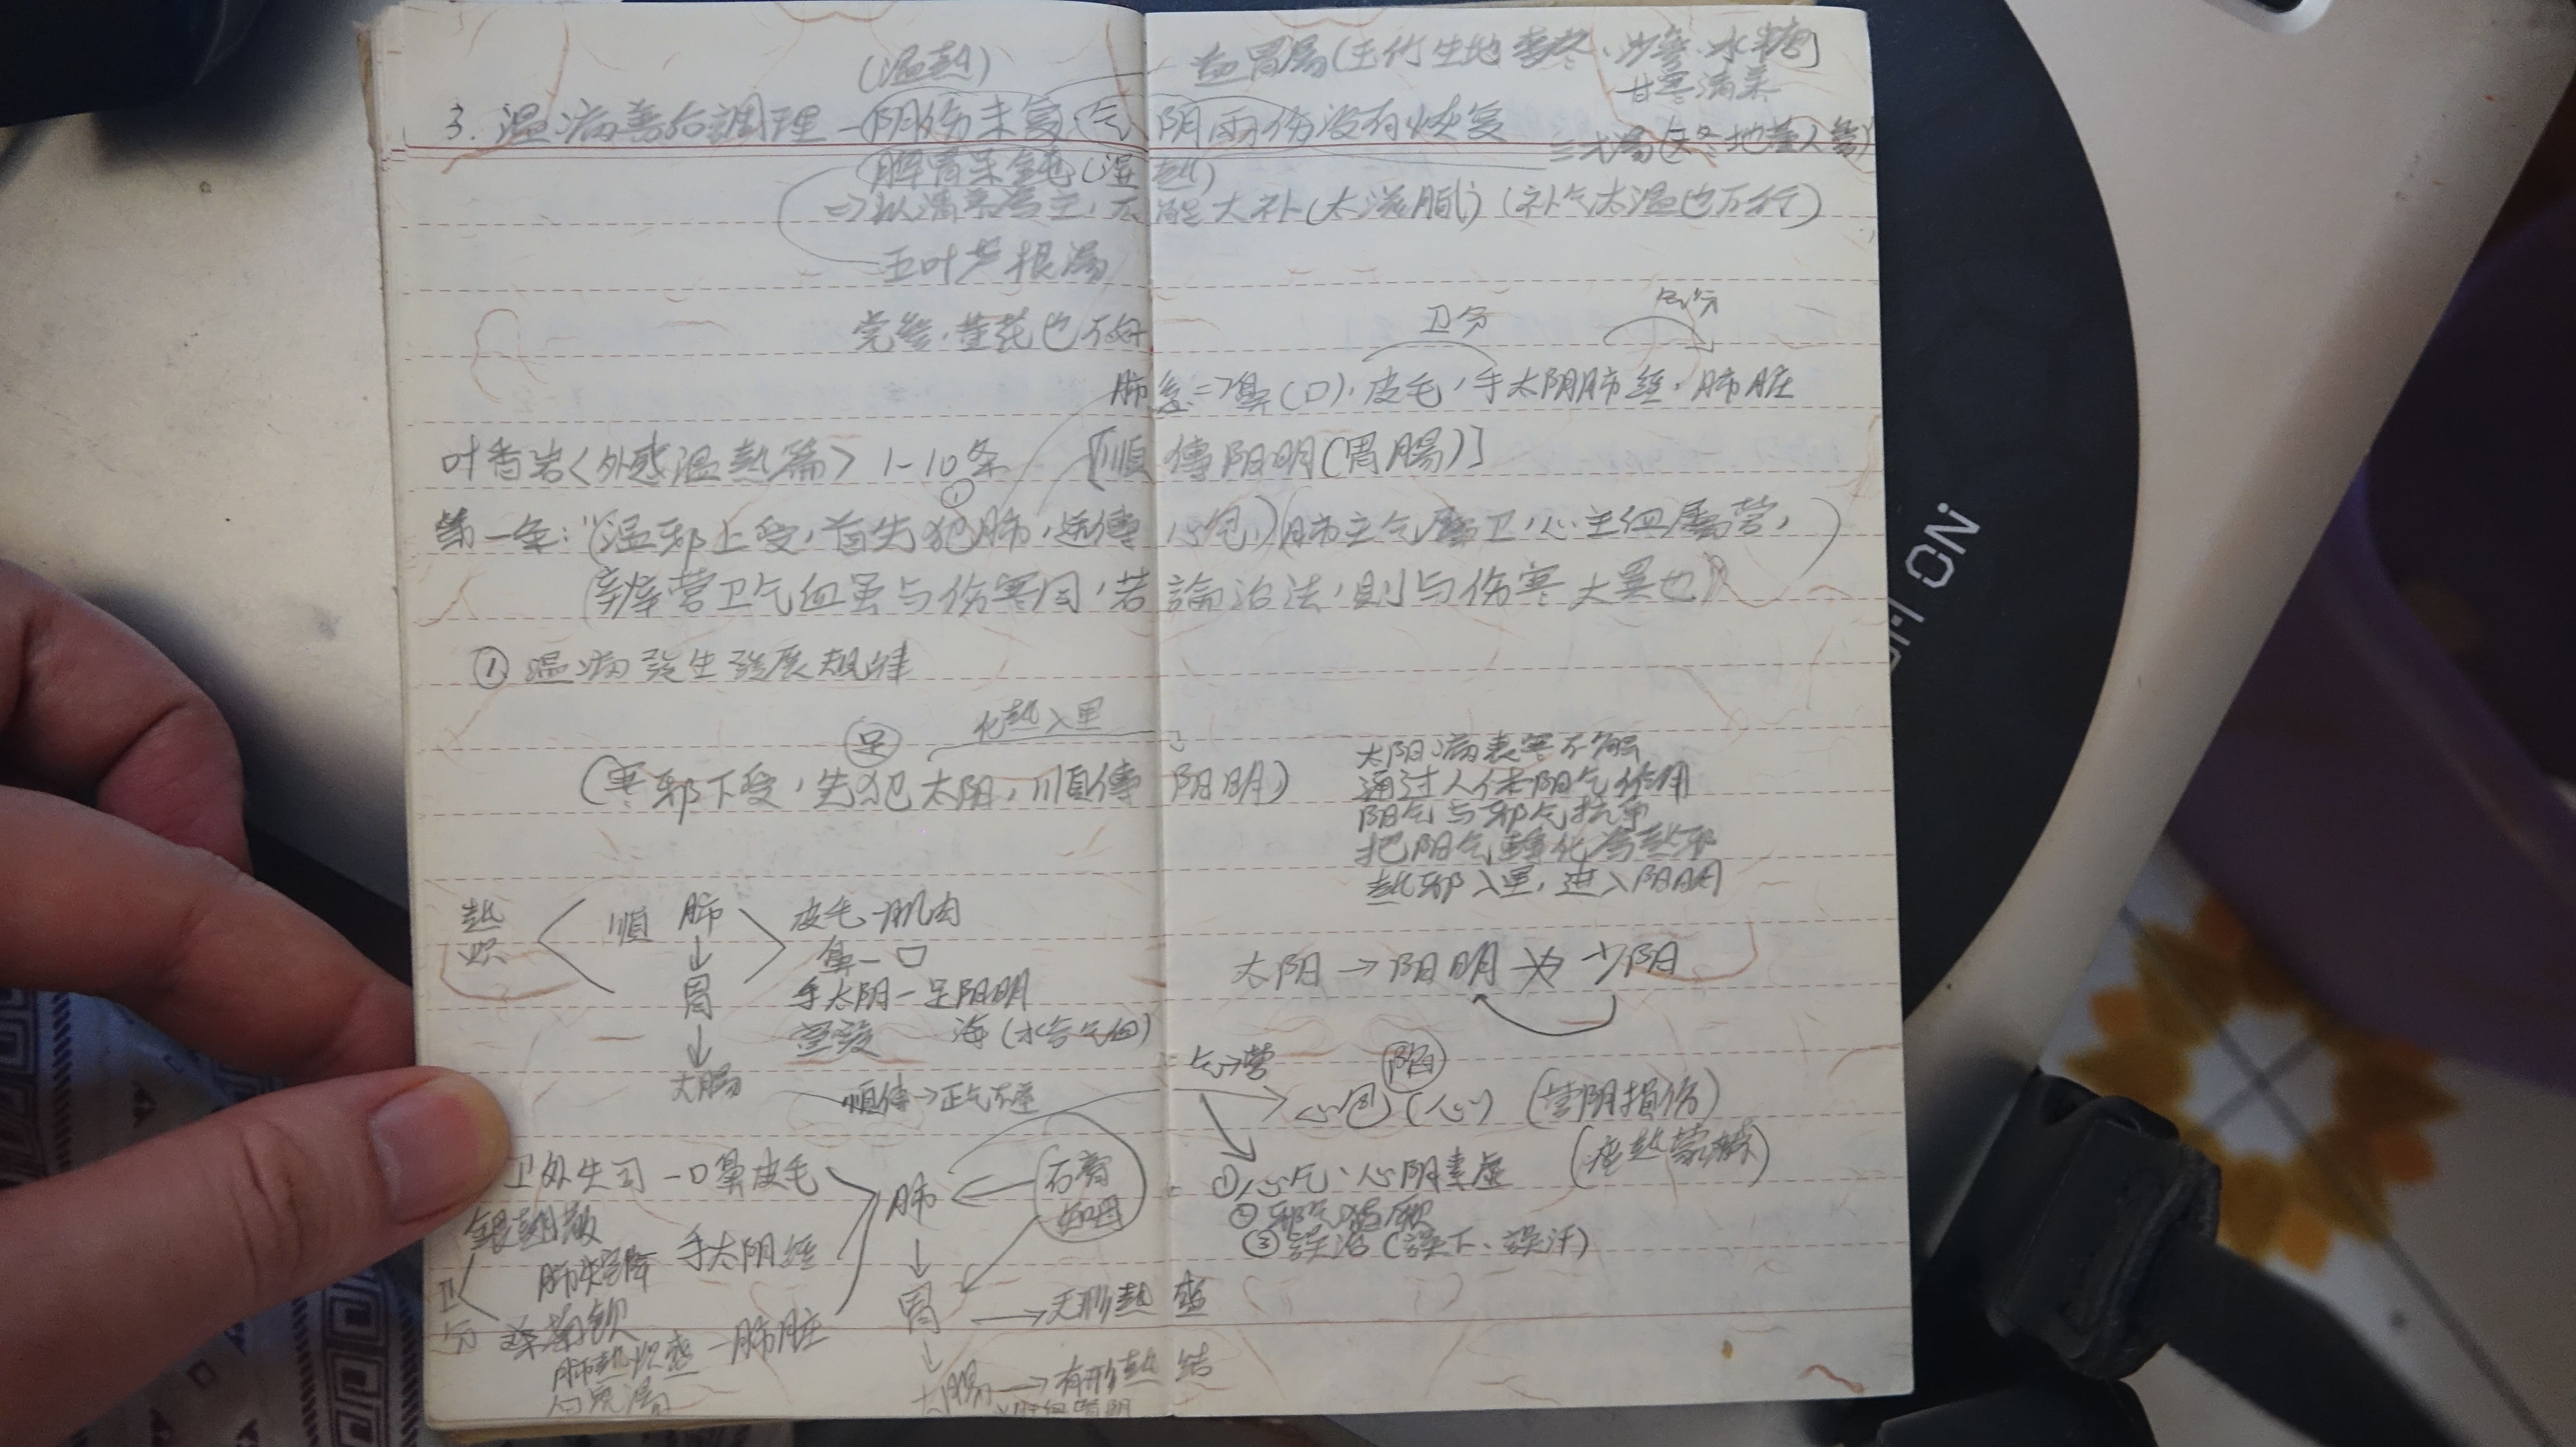 (温熱)
益胃湯(玉竹生地麥冬、沙參、冰糖)
甘寒清养
3. 温病善后調理 —阴伤未复 气阴两伤没有恢复
三才湯(天冬地黄人參)
脾胃呆鈍(湿熱)
=>以清养為主,不能大补(太滋膩)(补气太温也不行)
五叶芦根湯
党參、黄芪也不好
卫分
气分
肺系=>鼻(口)、皮毛,手太阴肺經、肺脏
叶香岩<外感温熱篇> 1-10条
[順傳阳明(胃腸)]
①
第一条:"(温邪上受,首先犯肺,逆傳心包)(肺主气屬卫,心主血屬营,)
辨营卫气血虽与伤寒同,若論治法,則与伤寒大異也"
① 温病發生發展規律
足
化熱入里
(寒邪下受,先犯太阳,順傳阳明)
太阳病表寒不解
通过人体阳气作用
阳气与邪气抗争
把阳气轉化為熱邪
熱邪入里,进入阳明
熱熾
順 肺 皮毛—肌肉
↓ 鼻—口
胃 手太阴—足阳明
↓ 宣發 海(水谷气血)
大腸
太阳→阳明 少阳
順傳→正气不虛
气→营
陷
心包(心) (营阴損伤)
(痰熱蒙蔽)
卫外失司—口鼻皮毛
肺
石膏
知母
①心气、心阴素虛
②邪气猖
③誤治(誤下、誤汗)
銀翹散
肺失宣降 手太阴經
↓
卫分
桑菊飲
胃→无形熱盛
肺熱熾盛—肺脏
↓
大腸→有形熱結